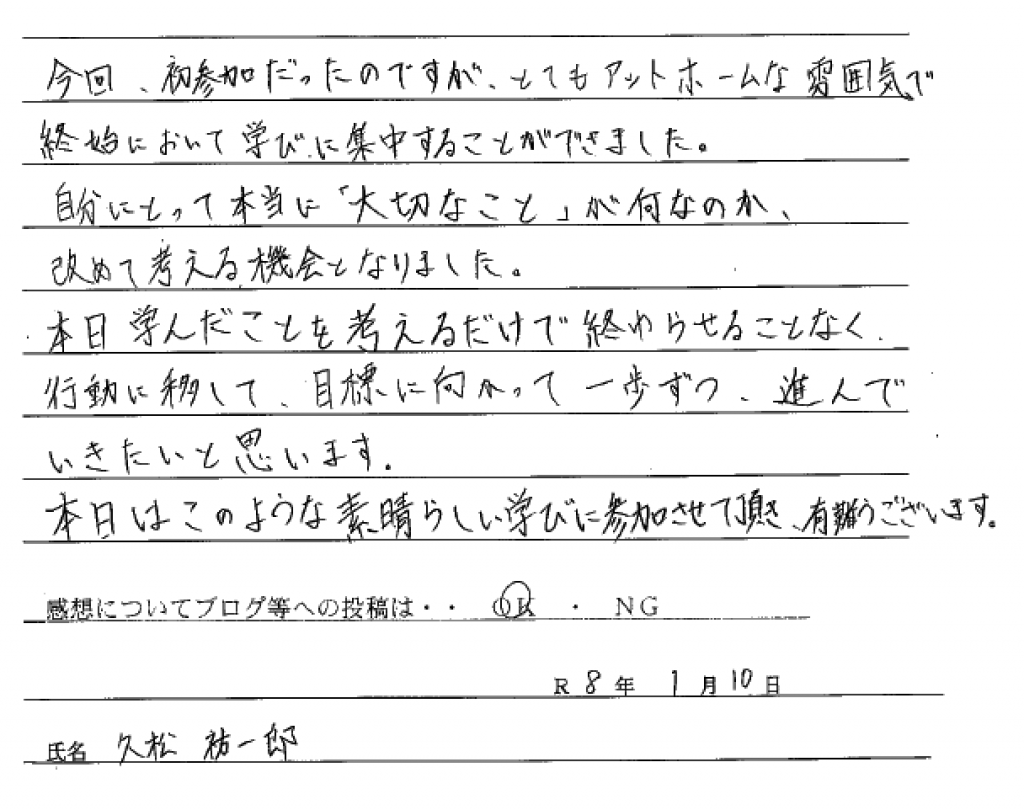 今回、初参加だったのですが、とてもアットホームな雰囲気で
終始において学びに集中することができました。
自分にとって本当に「大切なこと」が何なのか、
改めて考える機会となりました。
本日学んだことを考えるだけで終わらせることなく、
行動に移して、目標に向かって一歩ずつ、進んで
いきたいと思います。
本日はこのような素晴らしい学びに参加させて頂き、有難うございます。
感想についてブログ等への投稿は・・ OK ・ NG
R 8 年 1 月 10 日
氏名 久松 祐一郎